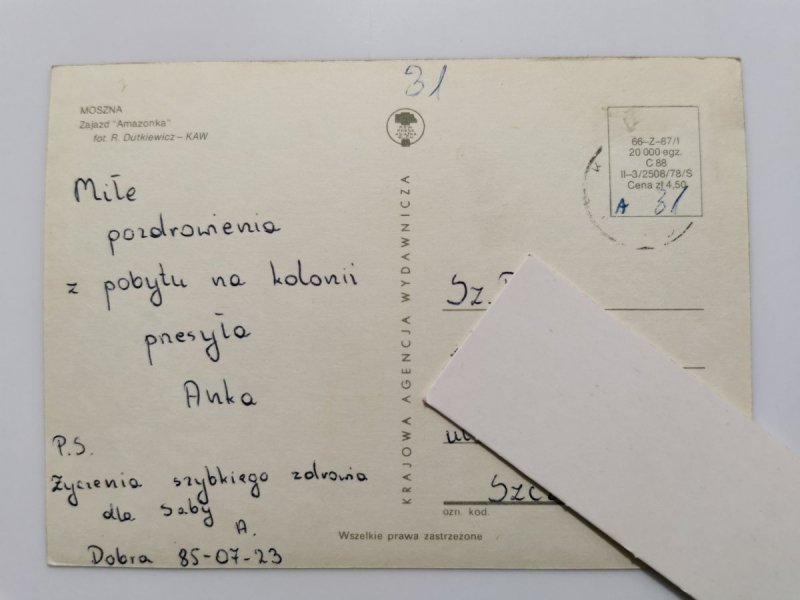 31
MOSZNA
Zajazd "Amazonka"
fot. R. Dutkiewicz – KAW
Miłe
pozdrowienia
z pobytu na kolonii
przesyła
Anka
P.S.
Życzenia szybkiego zdrowia
dla Saby
A.
Dobra 85-07-23
KRAJOWA AGENCJA WYDAWNICZA
66–Z–87/I
20 000 egz.
C 88
II–3/2508/78/S
Cena zł 4,50
A 31
Sz.
ul
ozn. kod.
Wszelkie prawa zastrzeżone